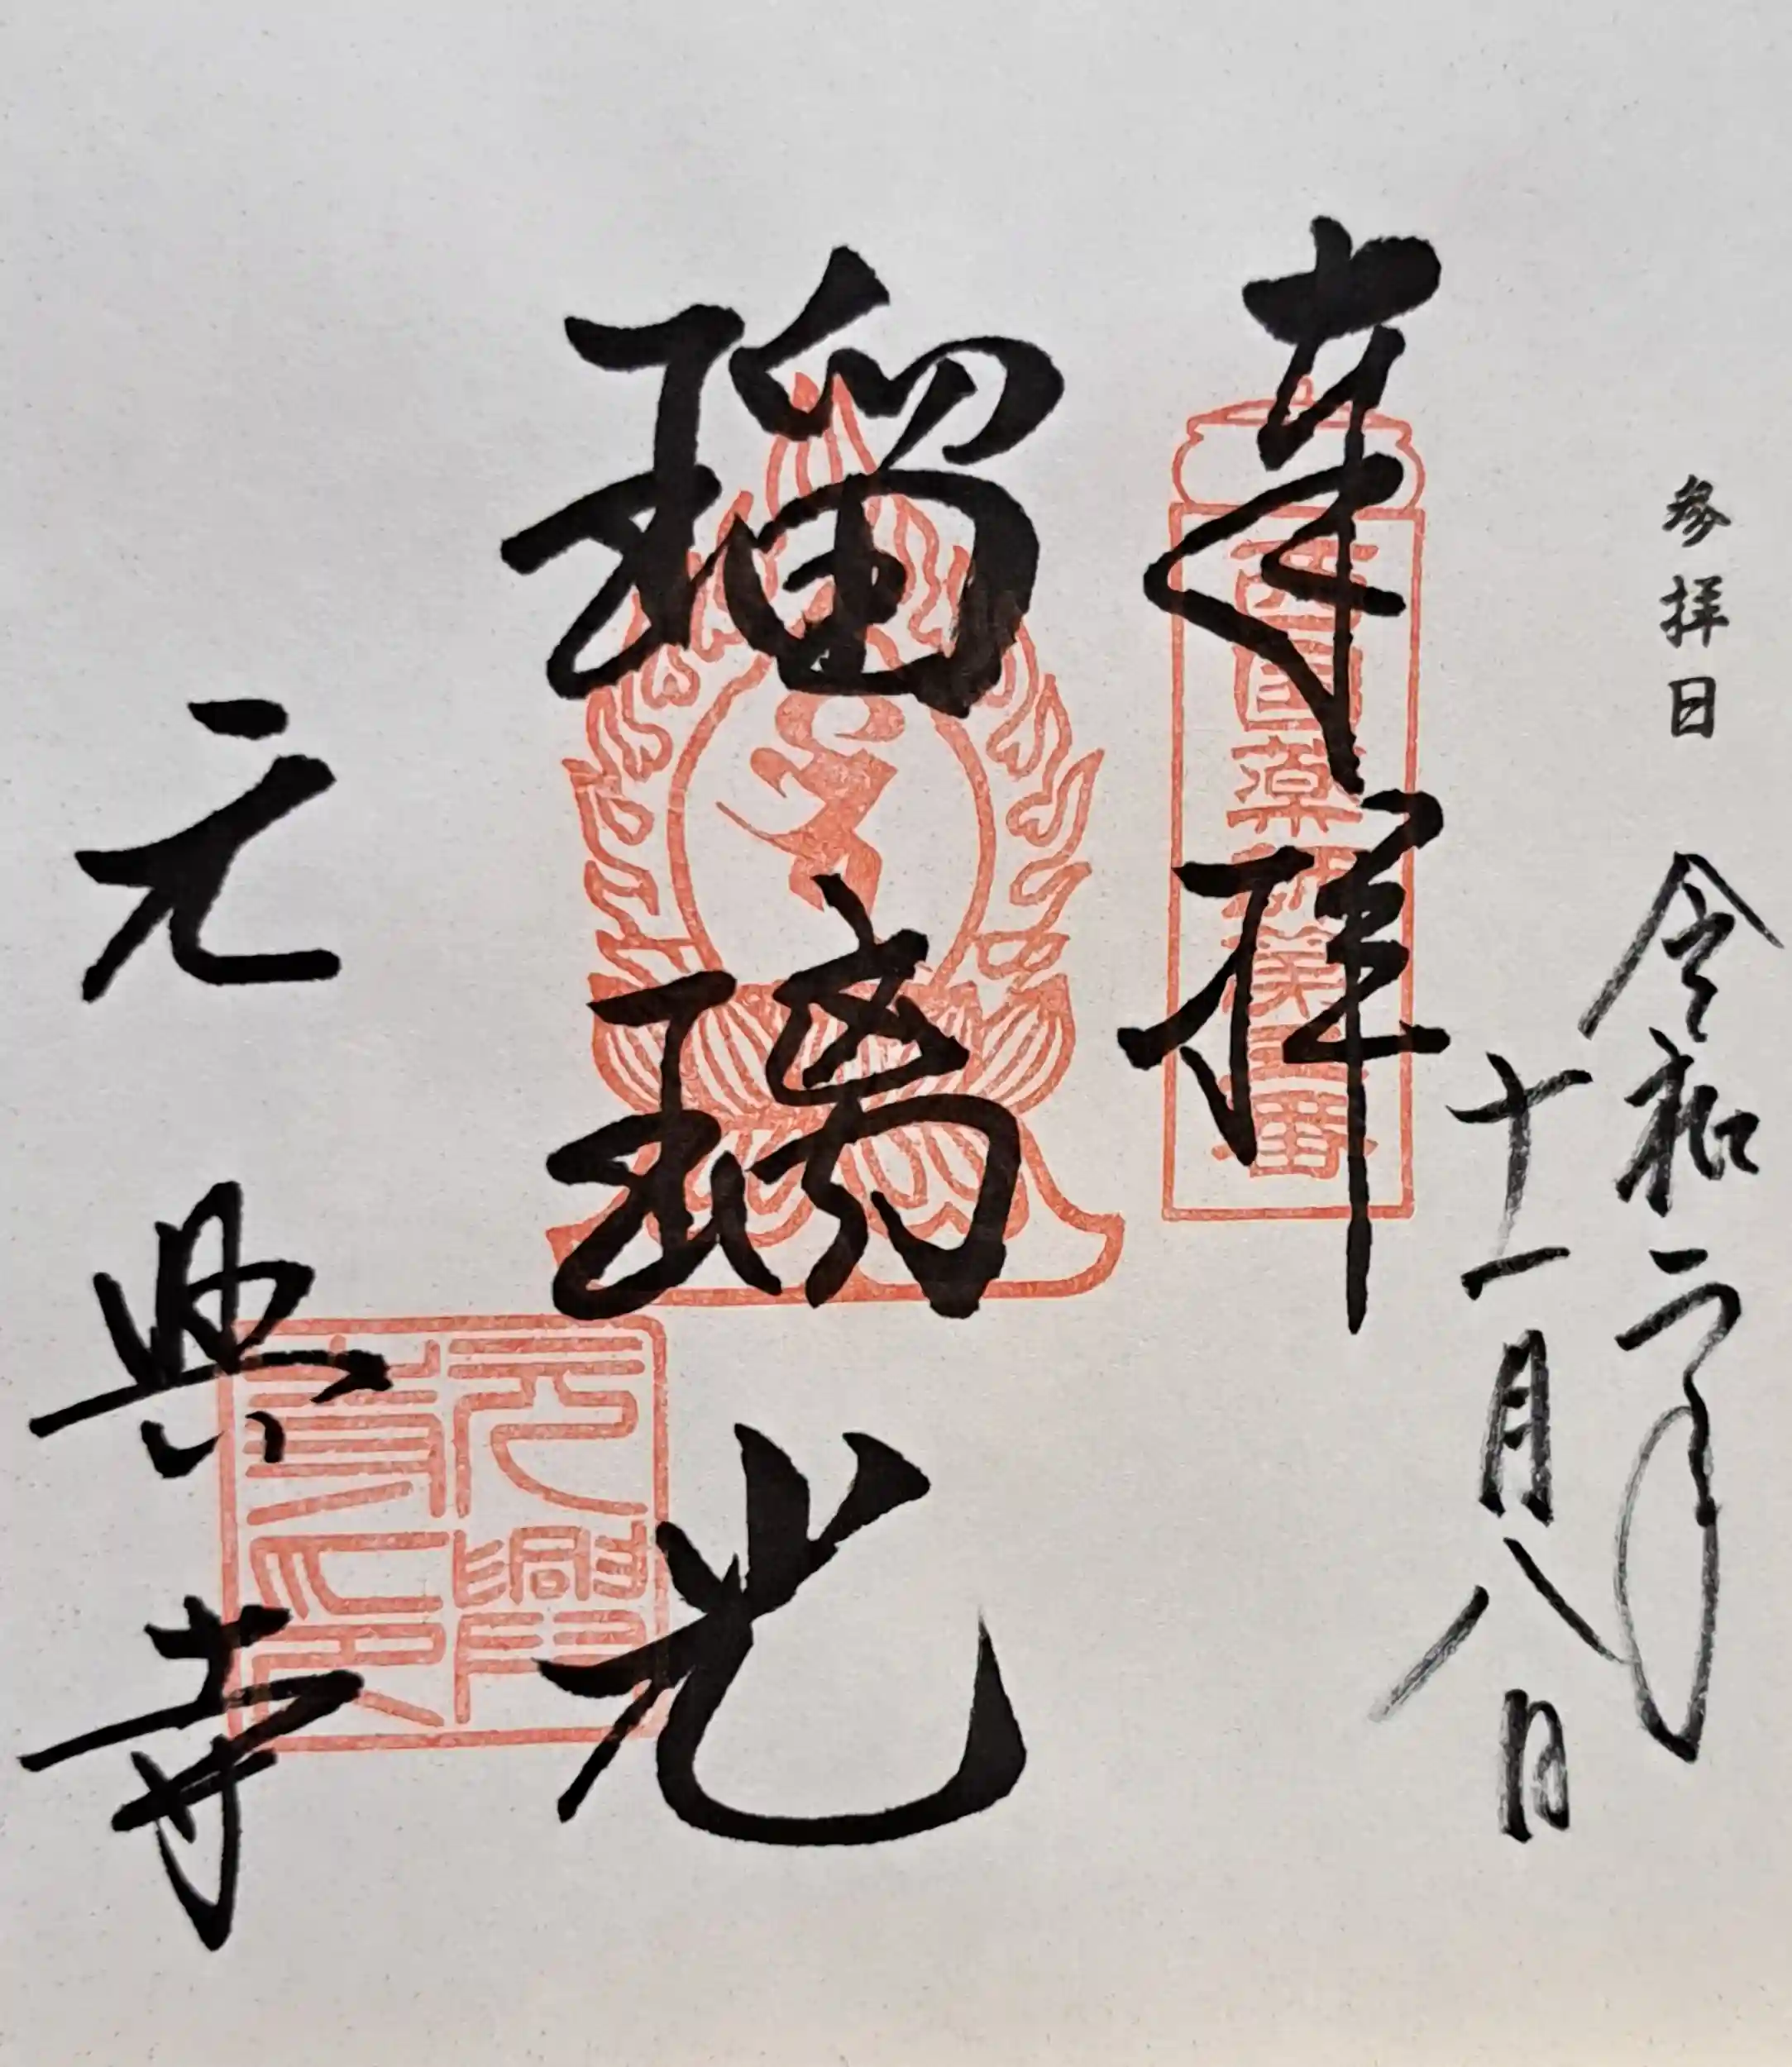 参拝日 令和二年
十一月八日
奉拝
西国薬師第五番
瑠璃光
元興寺
元興
寺印